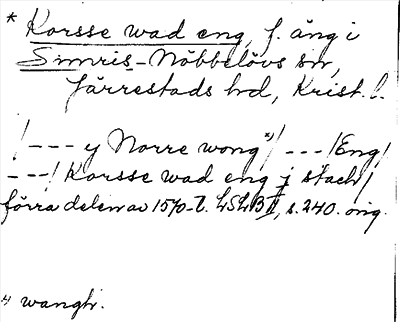 * Korsse wad eng, f. äng i
Simris-Nöbbelövs sn,
Järrestads hd, Krist. l.
/--- y Norre wong*)/ --- /Eng/
---/ Korsse wad eng j stach/
förra delen av 1570-t. LSLB II, s. 240. orig.
*) wangh.